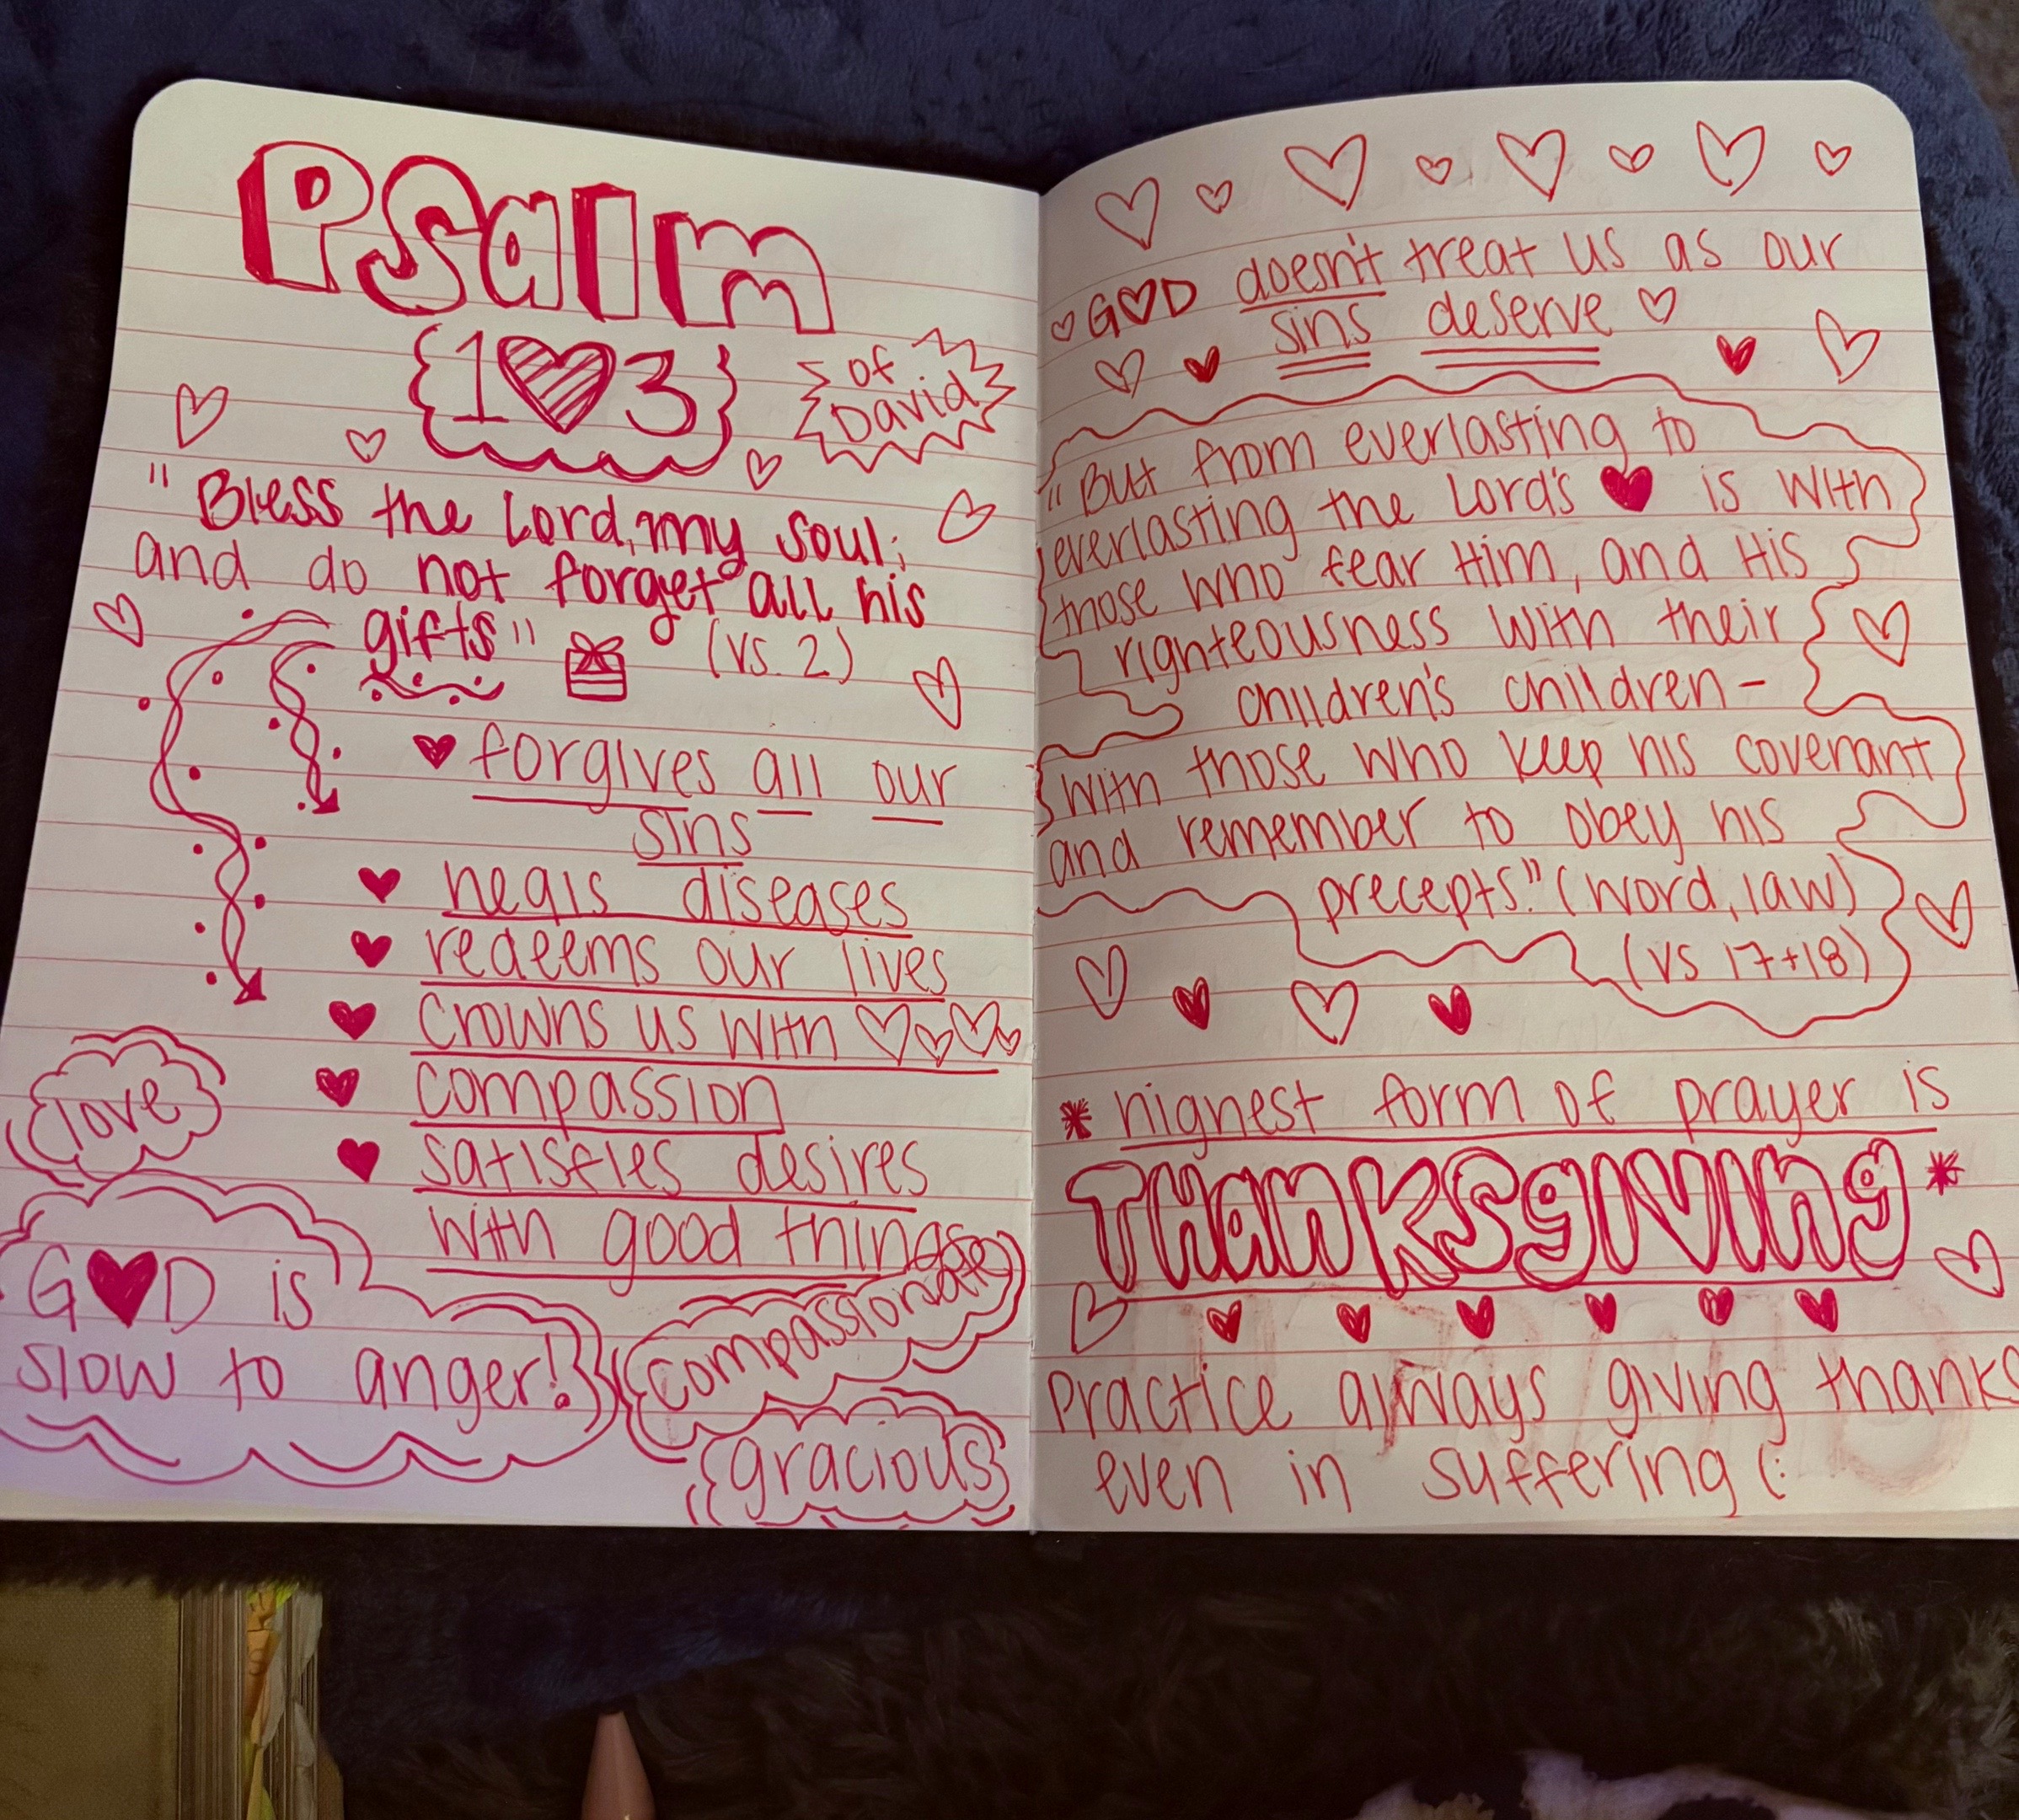 Psalm
1♥3
of
David
"Bless the Lord, my soul;
and do not forget all his
gifts" (vs. 2)
♥ forgives all our
sins
♥ heals diseases
♥ redeems our lives
♥ crowns us with ♡♡♡♡
♥ compassion
♥ satisfies desires
with good things
love
G♥D is
slow to anger!
compassionate
gracious
♡ G♡D doesn't treat us as our
sins deserve ♡
"But from everlasting to
everlasting the Lord's ♥ is with
those who fear Him, and His
righteousness with their
children's children-
with those who keep his covenant
and remember to obey his
precepts." (word, law)
(vs 17+18)
* highest form of prayer is
THanKSgIVIng *
Practice always giving thanks
even in suffering (: